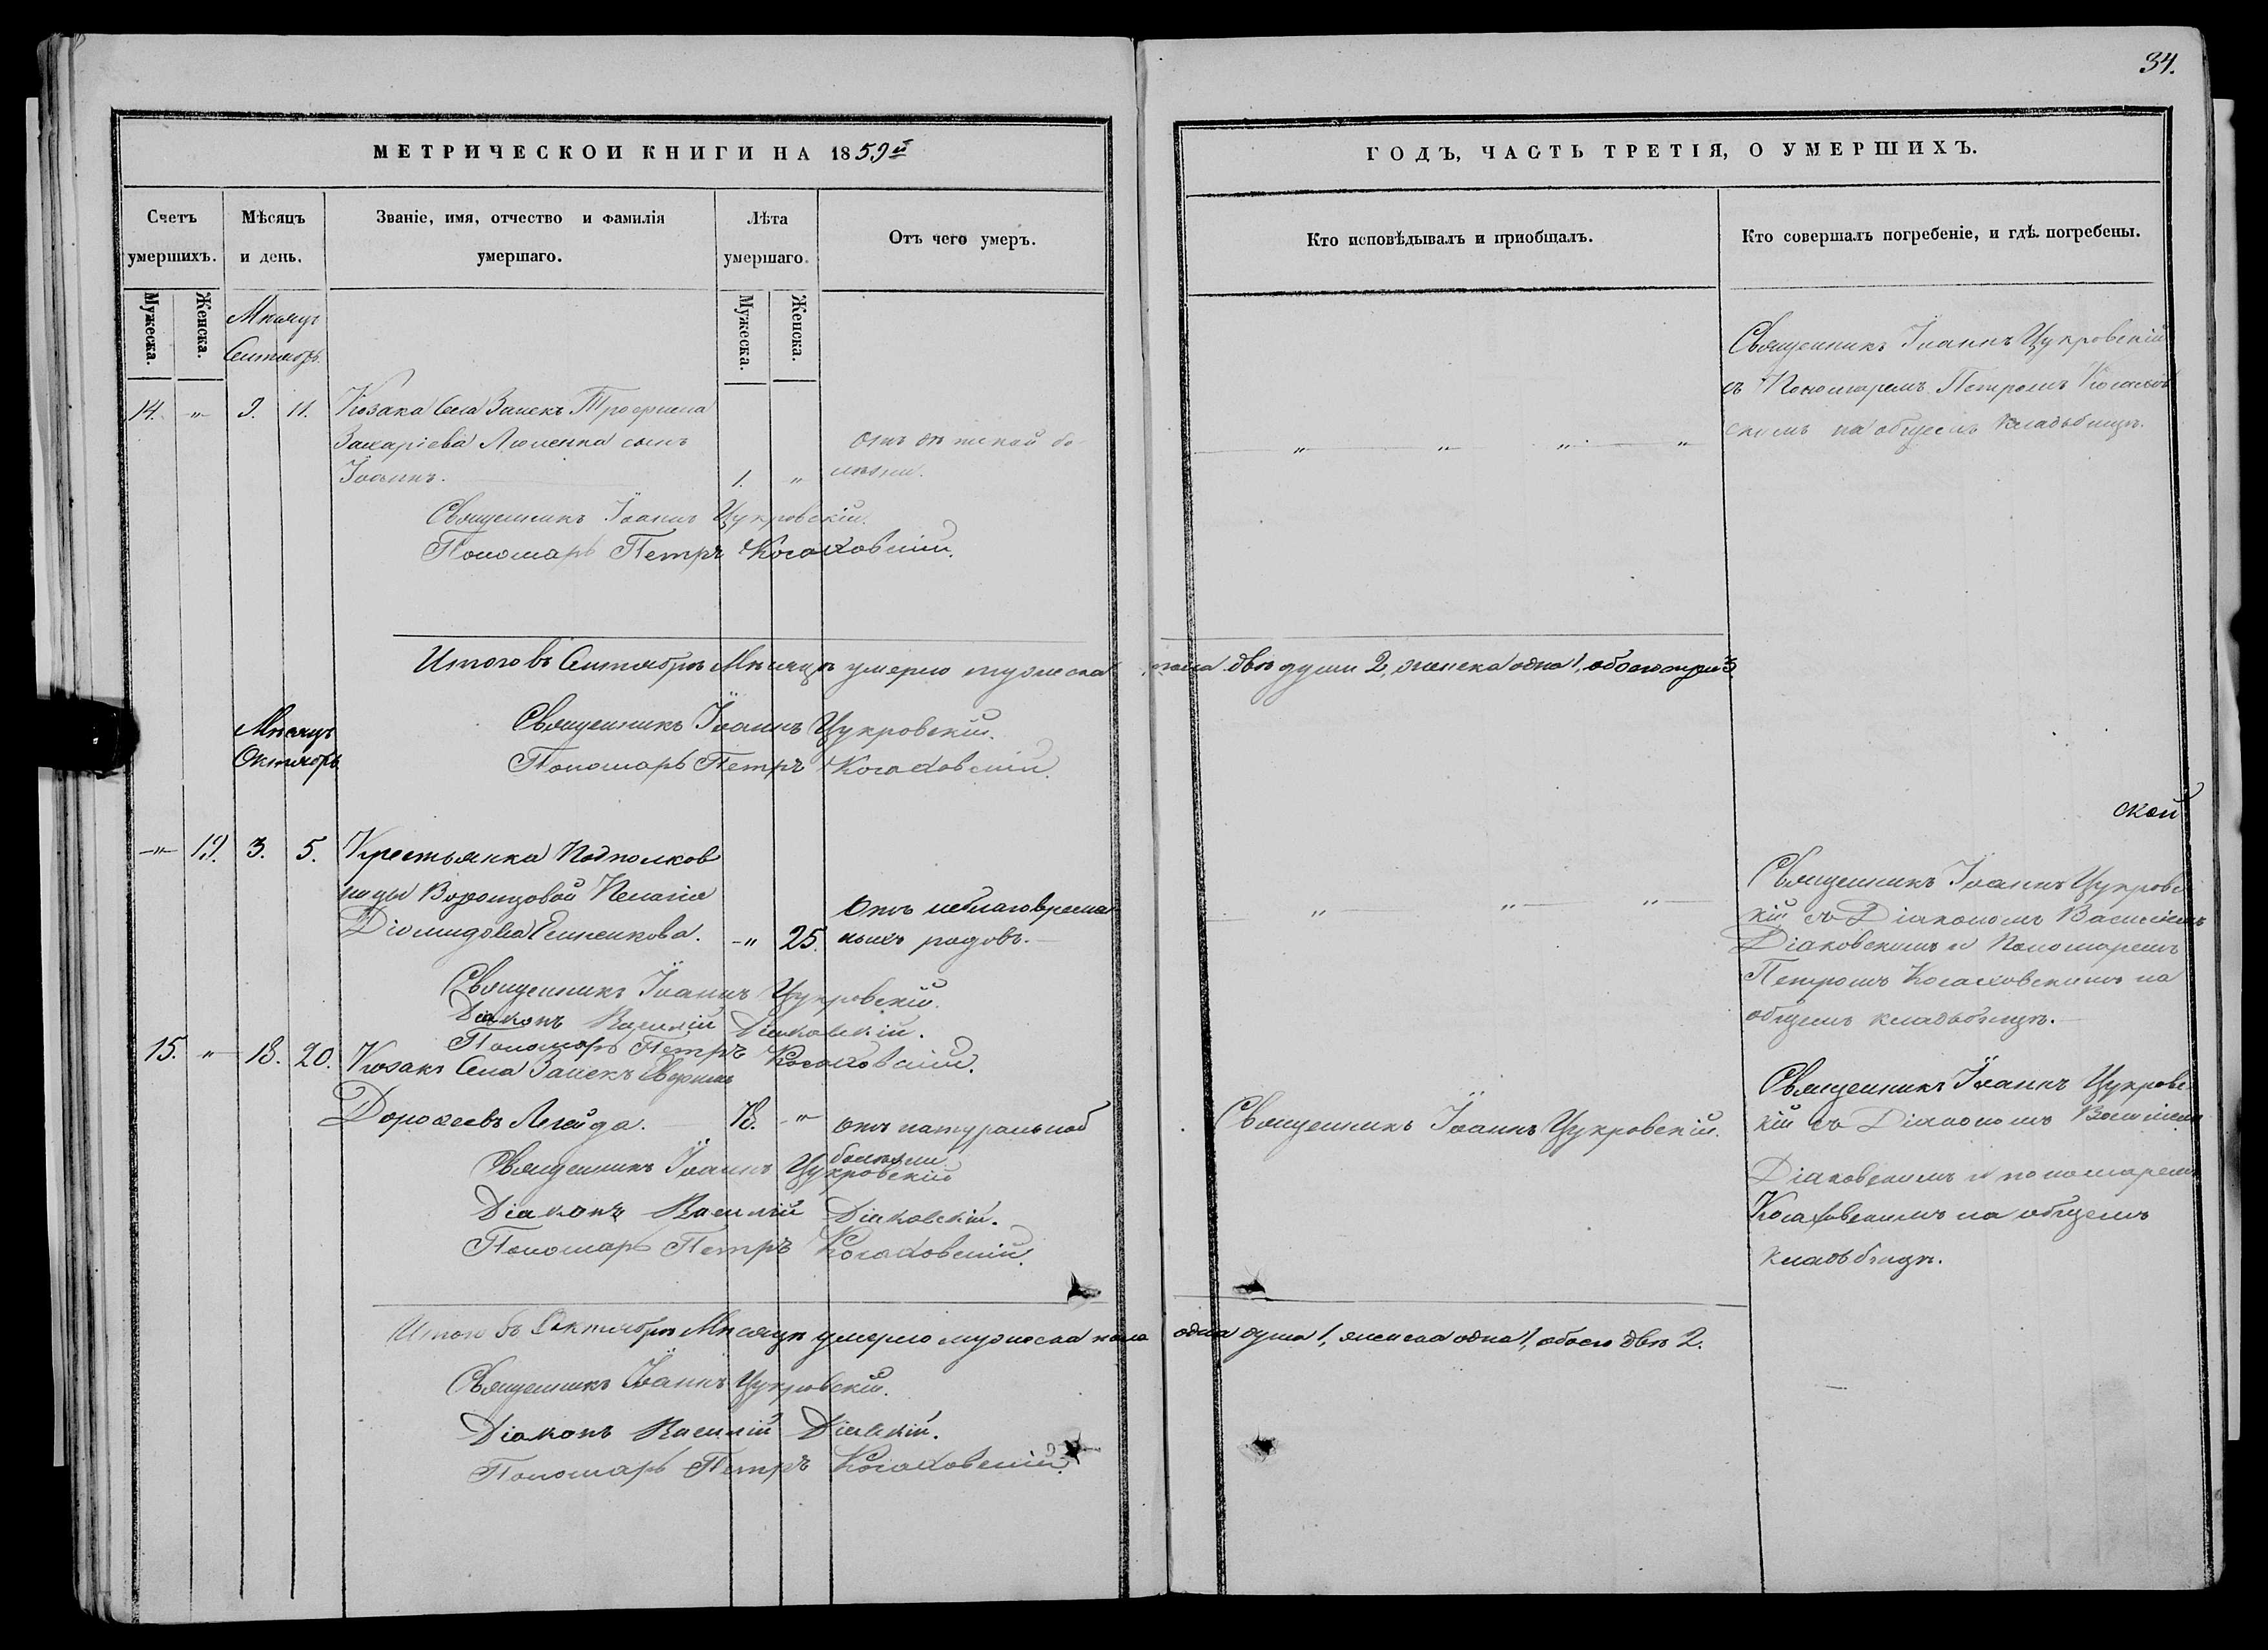 34.
МЕТРИЧЕСКОИ КНИГИ НА 1859й
ГОДЪ, ЧАСТЬ ТРЕТІЯ, О УМЕРШИХЪ.
Счетъ умершихъ.
Мѣсяцъ и день.
Званіе, имя, отчество и фамилія умершаго.
Лѣта умершаго.
Отъ чего умеръ.
Кто исповѣдывалъ и приобщалъ.
Кто совершалъ погребеніе, и гдѣ погребены.
Мужеска.
Женска.
Мужеска.
Женска.
Мѣсяцъ
Сентябрь.
14. -"- 9. 11. Козака Села Заиекъ Трофима
Захаріева сынъ
Іоаннъ. 1. "
Отъ дѣтской бо
лѣзни.
" " " "
Священникъ Іоаннъ Цукровскій
съ Пономаремъ Петромъ Косахов
скимъ на общемъ кладьбищѣ.
Священникъ Іоаннъ Цукровскій.
Пономарь Петръ Косаховскій.
Итого въ Сентябрѣ Мѣсяцѣ умерло мужеска пола двѣ души 2, женска одна 1, обоего три 3
Священникъ Іоаннъ Цукровскій.
Пономарь Петръ Косаховскій.
Мѣсяцъ
Октябрь
-"- 19. 3. 5. Крестьянка Подполков
ницы Воронцовой Пелагія
Діомидова -" 25.
Отъ неблаговремен
ныхъ родовъ.
" " "
ской
Священникъ Іоаннъ Цукровс
кій съ Діакономъ Василіемъ
Діаковскимъ и Пономаремъ
Петромъ Косаховскимъ на
общемъ кладьбищѣ.
Священникъ Іоаннъ Цукровскій.
Діаконъ Василій Діаковскій.
Пономарь Петръ Косаховскій.
15. " 18. 20. Козакъ Села Заиекъ Ефимъ
Дорофеевъ 78. -"-
отъ натуральной
болѣзни
Священникъ Іоаннъ Цукровскій.
Священникъ Іоаннъ Цукровс
кій съ Діакономъ Василіемъ
Діаковскимъ и пономаремъ
Косаховскимъ на общемъ
кладьбищѣ.
Священникъ Іоаннъ Цукровскій
Діаконъ Василій Діаковскій.
Пономарь Петръ Косаховскій.
Итого въ Октябрѣ Мѣсяцѣ умерло мужеска пола одна душа 1, женска одна 1, обоего двѣ 2.
Священникъ Іоаннъ Цукровскій.
Діаконъ Василій
Пономарь Петръ Косаховскій.